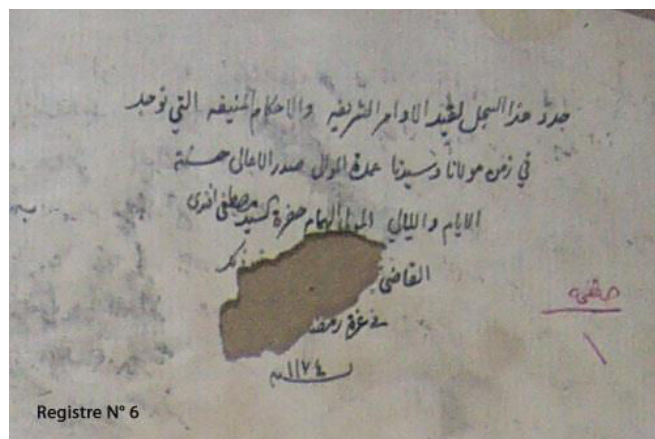 جدد هذا السجل لقيد الاوامر الشريفه والاحكام المنيفه التي توجد
في زمن مولانا وسيدنا عمدة الموال صدر الاعالى حسنة
الايام والليالي المولى الهمام حضرة السيد مصطفى افندى
القاضي
في غرة رمضا
سنة ١١٧٤
صحيفه
١
Registre N° 6